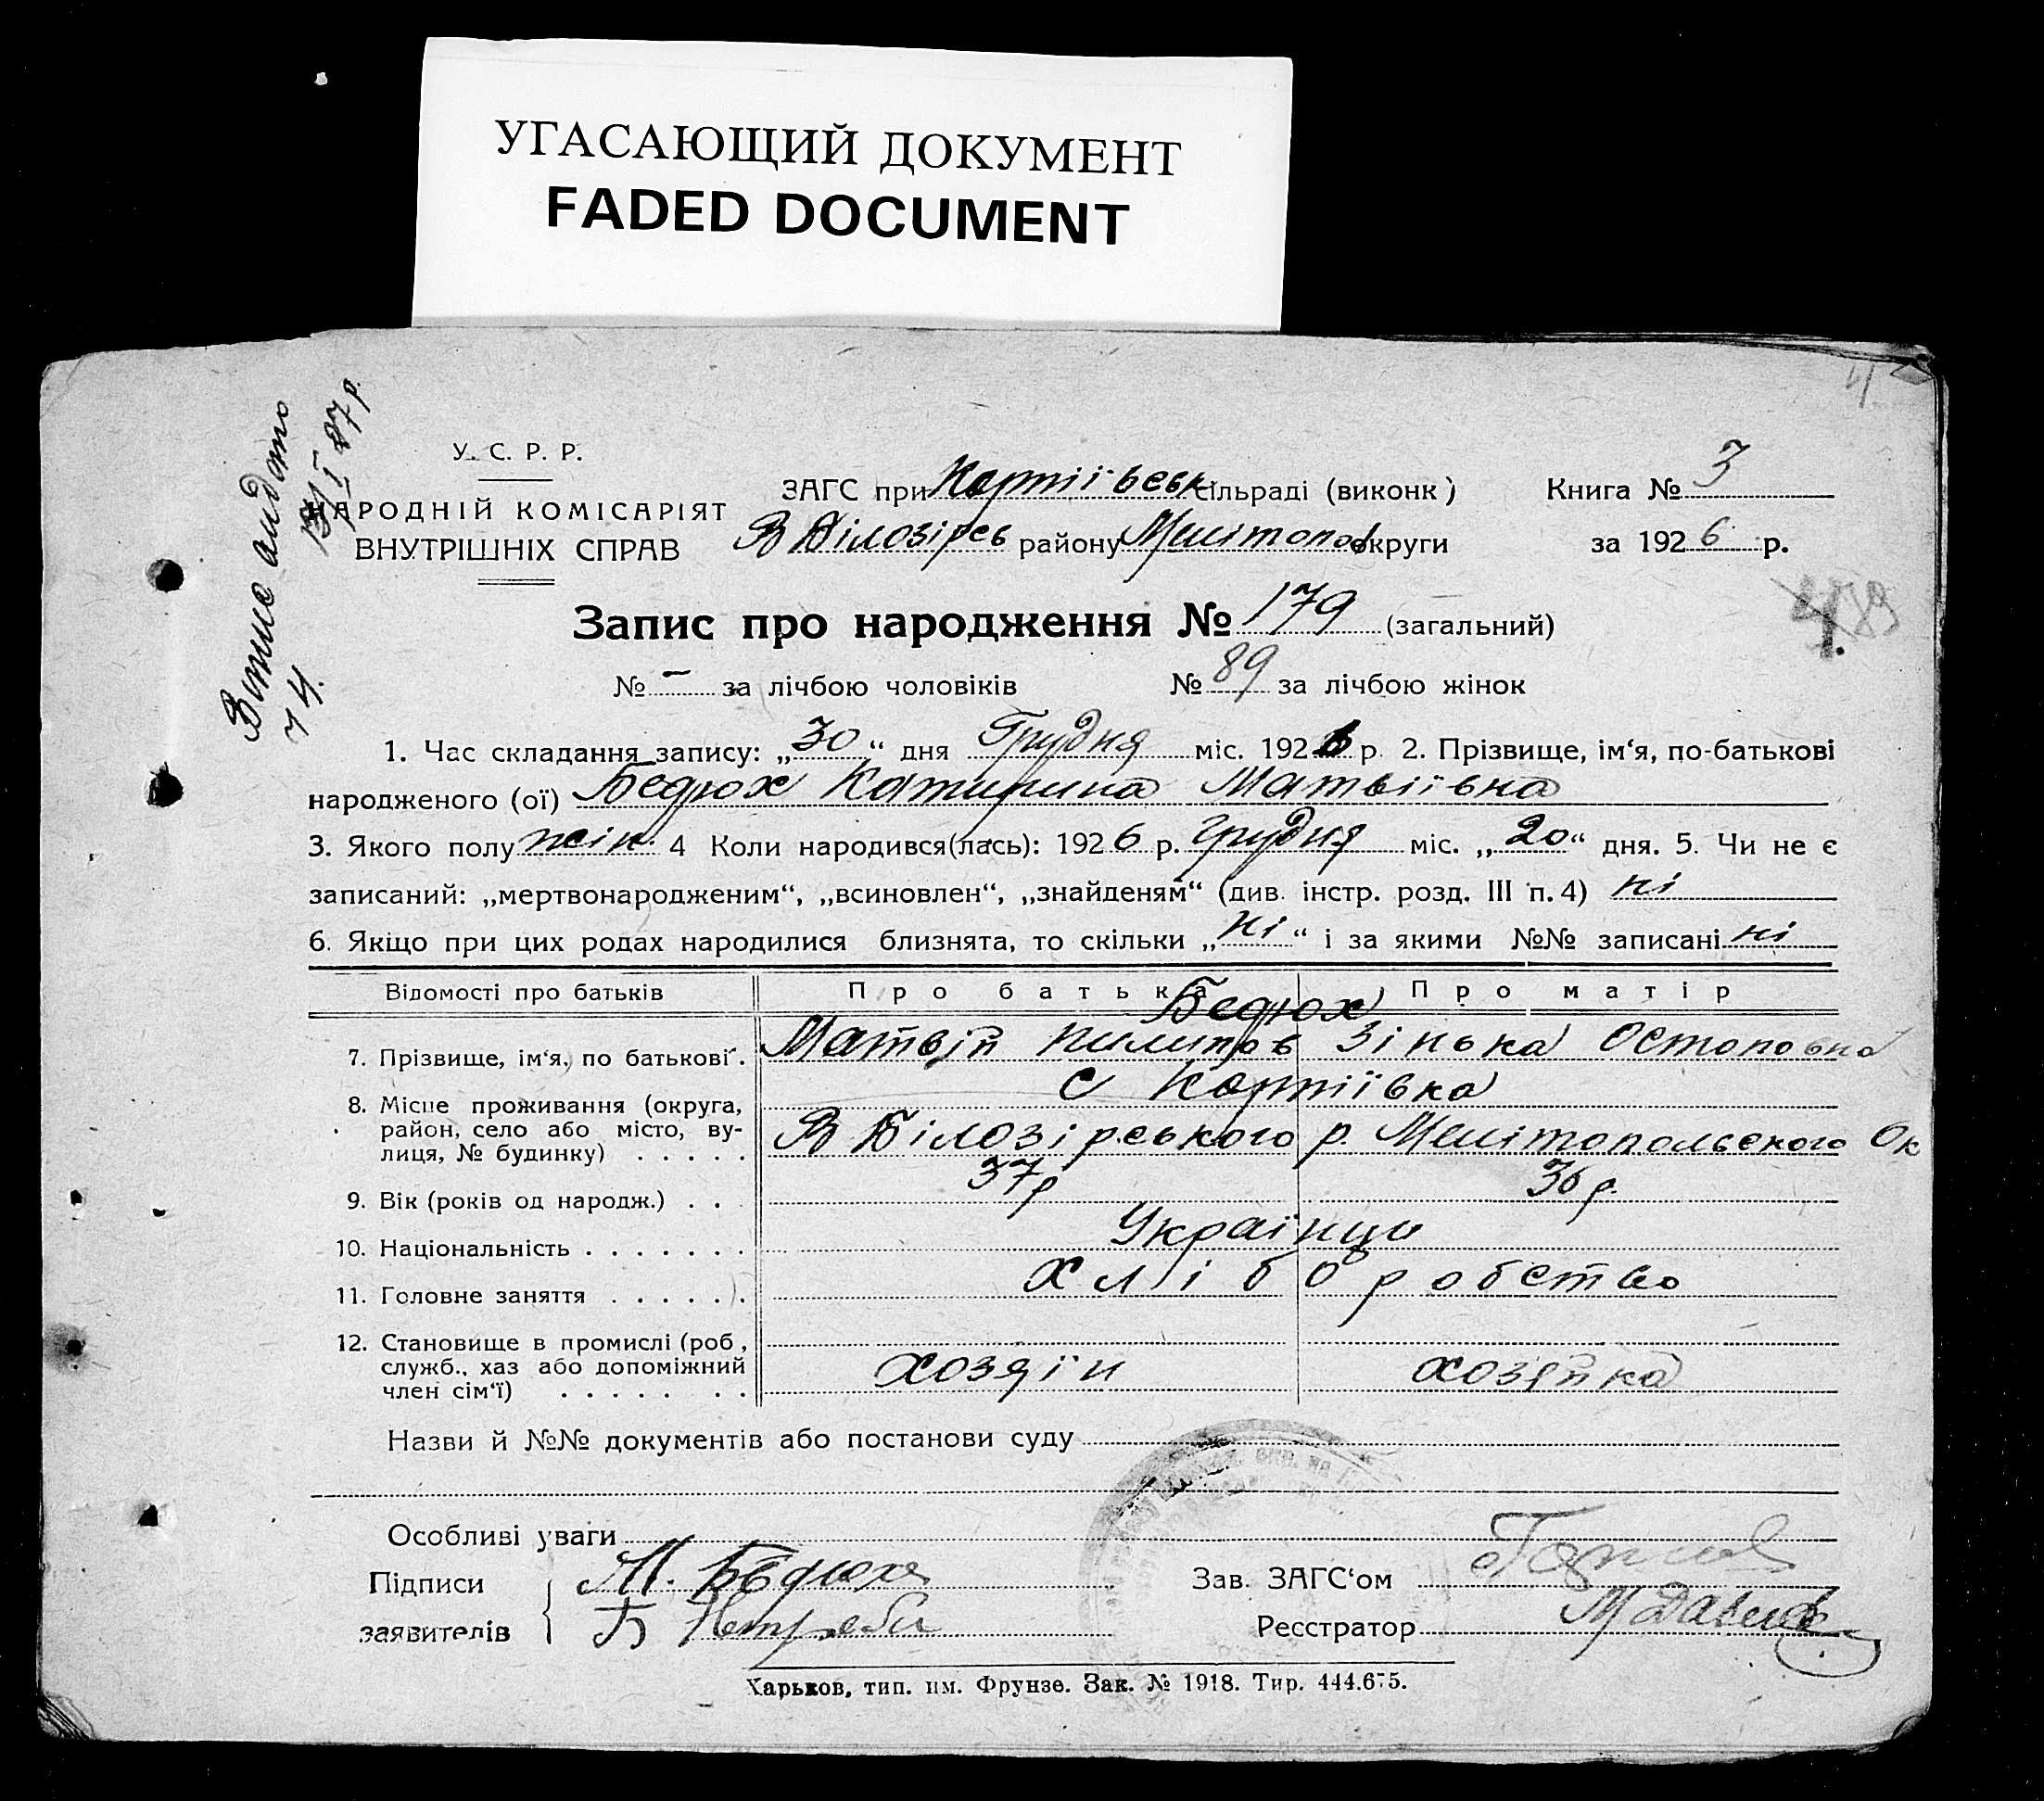 УГАСАЮЩИЙ ДОКУМЕНТ
FADED DOCUMENT
4
У. С. Р. Р.
НАРОДНІЙ КОМІСАРІЯТ
ВНУТРІШНІХ СПРАВ
ЗАГС при Картіївськ сільраді (виконк)
В Білозірсь району Мелітопол округи
Книга № 3
за 1926 р.
Запис про народження № 179 (загальний)
№ – за лічбою чоловіків № 89 за лічбою жінок
1. Час складання запису: „30“ дня Грудня міс. 1926 р. 2. Прізвище, ім‘я, по-батькові
народженого (ої) Бедюх Катирина Матвіївна
3. Якого полу жін. 4 Коли народився(лась): 1926 р. грудня міс. „20“ дня. 5. Чи не є
записаний: „мертвонародженим“, „всиновлен“, „знайденям“ (див. інстр. розд. III п. 4) ні
6. Якщо при цих родах народилися близнята, то скільки „ні“ і за якими №№ записані ні
Відомості про батьків Про батька Про матір
Бедюх
7. Прізвище, ім‘я, по батькові. Матвій Пилипов Зінька Остаповна
с Картіївка
8. Місце проживання (округа,
район, село або місто, ву-
лиця, № будинку) В Білозірського р. Мелітопольского Ок
9. Вік (років од народж.) 37р 36 р.
10. Національність Українци
11. Головне заняття Хліборобство
12. Становище в промислі (роб,
служб., хаз або допоміжний
член сім‘ї) хозяїн хозяйка
Назви й №№ документів або постанови суду
Особливі уваги
Підписи М. Бедюх
заявителів Б
Зав. ЗАГС‘ом
Реєстратор М Давид
Харьков, тип. им. Фрунзе. Зак. № 1918. Тир. 444.675.